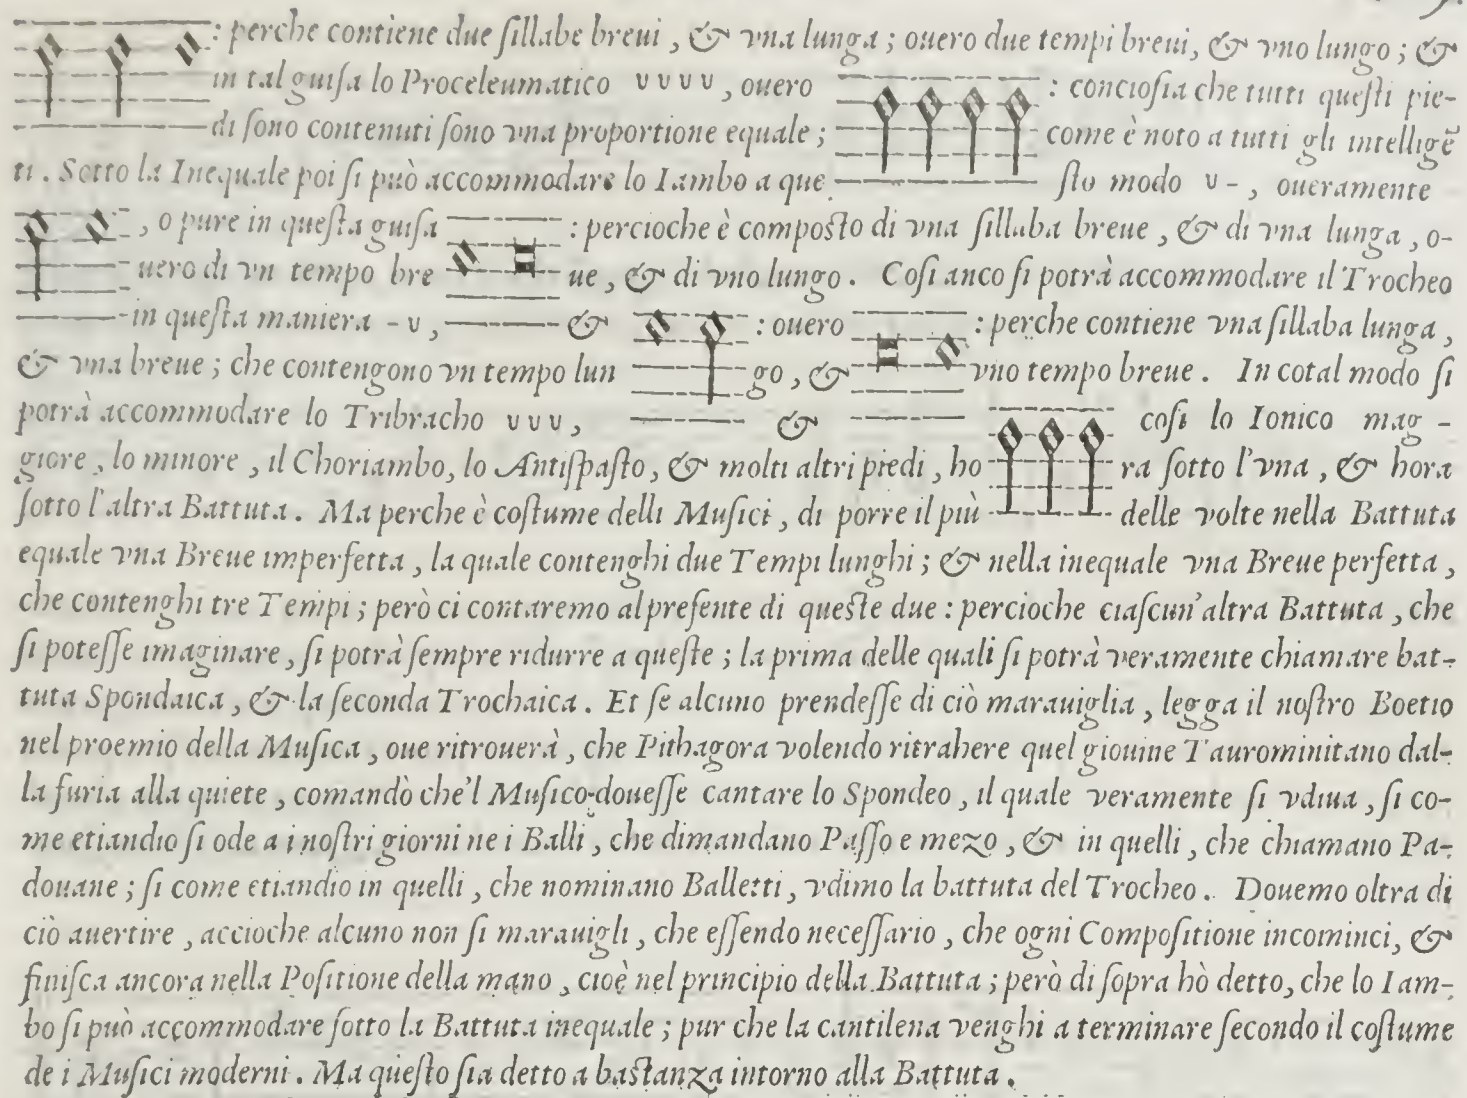 : perche contiene due ſillabe breui, & vna lunga; ouero due tempi breui, & vno lungo; &
in tal guiſa lo Proceleumatico v v v v, ouero : concioſia che tutti queſti pie-
di ſono contenuti ſono vna proportione equale; come è noto a tutti gli intelligẽ
ti. Sotto la Inequale poi ſi può accommodare lo Iambo a que ſto modo v -, oueramente
, o pure in queſta guiſa : percioche è compoſto di vna ſillaba breue, & di vna lunga, o-
uero di vn tempo bre ue, & di vno lungo. Coſi anco ſi potrà accommodare il Trocheo
in queſta maniera - v, & : ouero : perche contiene vna ſillaba lunga,
& vna breue; che contengono vn tempo lun go, & vno tempo breue. In cotal modo ſi
potrà accommodare lo Tribracho v v v, & coſi lo Ionico mag-
giore, lo minore, il Choriambo, lo Antiſpaſto, & molti altri piedi, ho ra ſotto l'vna, & hora
ſotto l'altra Battuta. Ma perche è coſtume delli Muſici, di porre il più delle volte nella Battuta
equale vna Breue imperfetta, la quale contenghi due Tempi lunghi; & nella inequale vna Breue perfetta,
che contenghi tre Tempi; però ci contaremo al preſente di queſte due: percioche ciaſcun'altra Battuta, che
ſi poteſſe imaginare, ſi potrà ſempre ridurre a queſte; la prima delle quali ſi potrà veramente chiamare bat-
tuta Spondaica, & la ſeconda Trochaica. Et ſe alcuno prendeſſe di ciò marauiglia, legga il noſtro Boetio
nel proemio della Muſica, oue ritrouerà, che Pithagora volendo ritrahere quel giouine Taurominitano dal-
la furia alla quiete, comandò che'l Muſico doueſſe cantare lo Spondeo, il quale veramente ſi vdiua, ſi co-
me etiandio ſi ode a i noſtri giorni ne i Balli, che dimandano Paſſo e mezo, & in quelli, che chiamano Pa-
douane; ſi come etiandio in quelli, che nominano Balletti, vdimo la battuta del Trocheo. Douemo oltra di
ciò auertire, accioche alcuno non ſi marauigli, che eſſendo neceſſario, che ogni Compoſitione incominci, &
finiſca ancora nella Poſitione della mano, cioè nel principio della Battuta; però di ſopra hò detto, che lo Iam-
bo ſi può accommodare ſotto la Battuta inequale; pur che la cantilena venghi a terminare ſecondo il coſtume
de i Muſici moderni. Ma queſto ſia detto a baſtanza intorno alla Battuta.